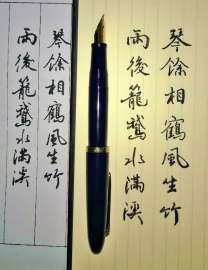 琴餘相鶴風生竹
雨後籠鵞水滿溪
琴餘相鶴風生竹
雨後籠鵞水滿溪